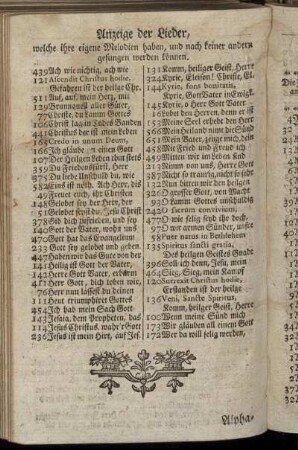 Anzeige der Lieder,
welche ihre eigene Melodien haben, und nach keiner andern
gesungen werden können.
439 Ach wie nichtig, ach wie
121 Ascendit Christus hodie.
Gefahren ist der heilge Chr.
511 Auf, auf, mein Herz, mit
129 Brunnquell aller Güter,
77 Christe, du Lamm Gottes
106 Christ lag in Todes Banden
441 Christus der ist mein Leben
165 Credo in unum Deum,
166 Ich gläube an einen Gott
107 Des Heilgen Leben thut stets
359 Du Friedensfürst, Herr
375 Du liebe Unschuld du, wie
582 Eins ist noth, Ach Herr, dis
49 Freuet euch, ihr Christen
48 Gelobet sey der Herr, der
51 Gelobet seyst du, Jesu Christ
378 Gib dich zufrieden, und sey
140 Gott der Vater, wohn uns
470 Gott hat das Evangelium
233 Gott sey gelobet und gebenedt.
447 Haben wir das Gute von der
141 Heilig ist Gott der Vater,
142 Herr Gott Vater, erbarm
411 Herr Gott, dich loben wir,
76 Herr nun lässest du deinen
111 Heut triumphiret Gottes
484 Ich hab mein Sach Gott
143 Jesaia, dem Propheten, das
114 Jesus Christus, wahr'r Gott
236 Jesus ist mein Hirt, auf Jes.
131 Komm, heiliger Geist, Herre
324 Kyrie, Eleison! Christe, El.
144 Kyrie, fons bonitatis,
Kyrie, Gott Vater in Ewigk.
145 Kyrie, o Herr Gott Vater
16 Lobet den Herren, denn er ist
155 Meine Seel erhebt den Herr
566 Mein Heiland nimt die Sünd
561 Mein Vater, zeuge mich, dein
455 Mit Fried und Freud ich
459 Mitten wir im Leben sind
251 Nimm von uns, Herre Gott
387 Nicht so traurig, nicht so sehr
132 Nun bitten wir den heilgen
326 O grosser Gott, von Macht
93 O Lamm Gottes unschuldig
242 O sacrum convivium.
477 O wie selig seyd ihr doch,
97 O wir armen Sünder, unser
58 Puer natus in Bethlehem
135 Spiritus sancti gratia,
Des heilgen Geistes Gnade
396 Soll ich denn, Jesu, mein
464 Sieg, Sieg, mein Kampf
120 Surrexit Christus hodie,
Erstanden ist der heilge
136 Veni, Sancte Spiritus,
Komm, heilger Geist, Herre
100 Wenn meine Sünd mich
173 Wir gläuben all einem Gott
172 Wer da will selig werden,
Alpha-